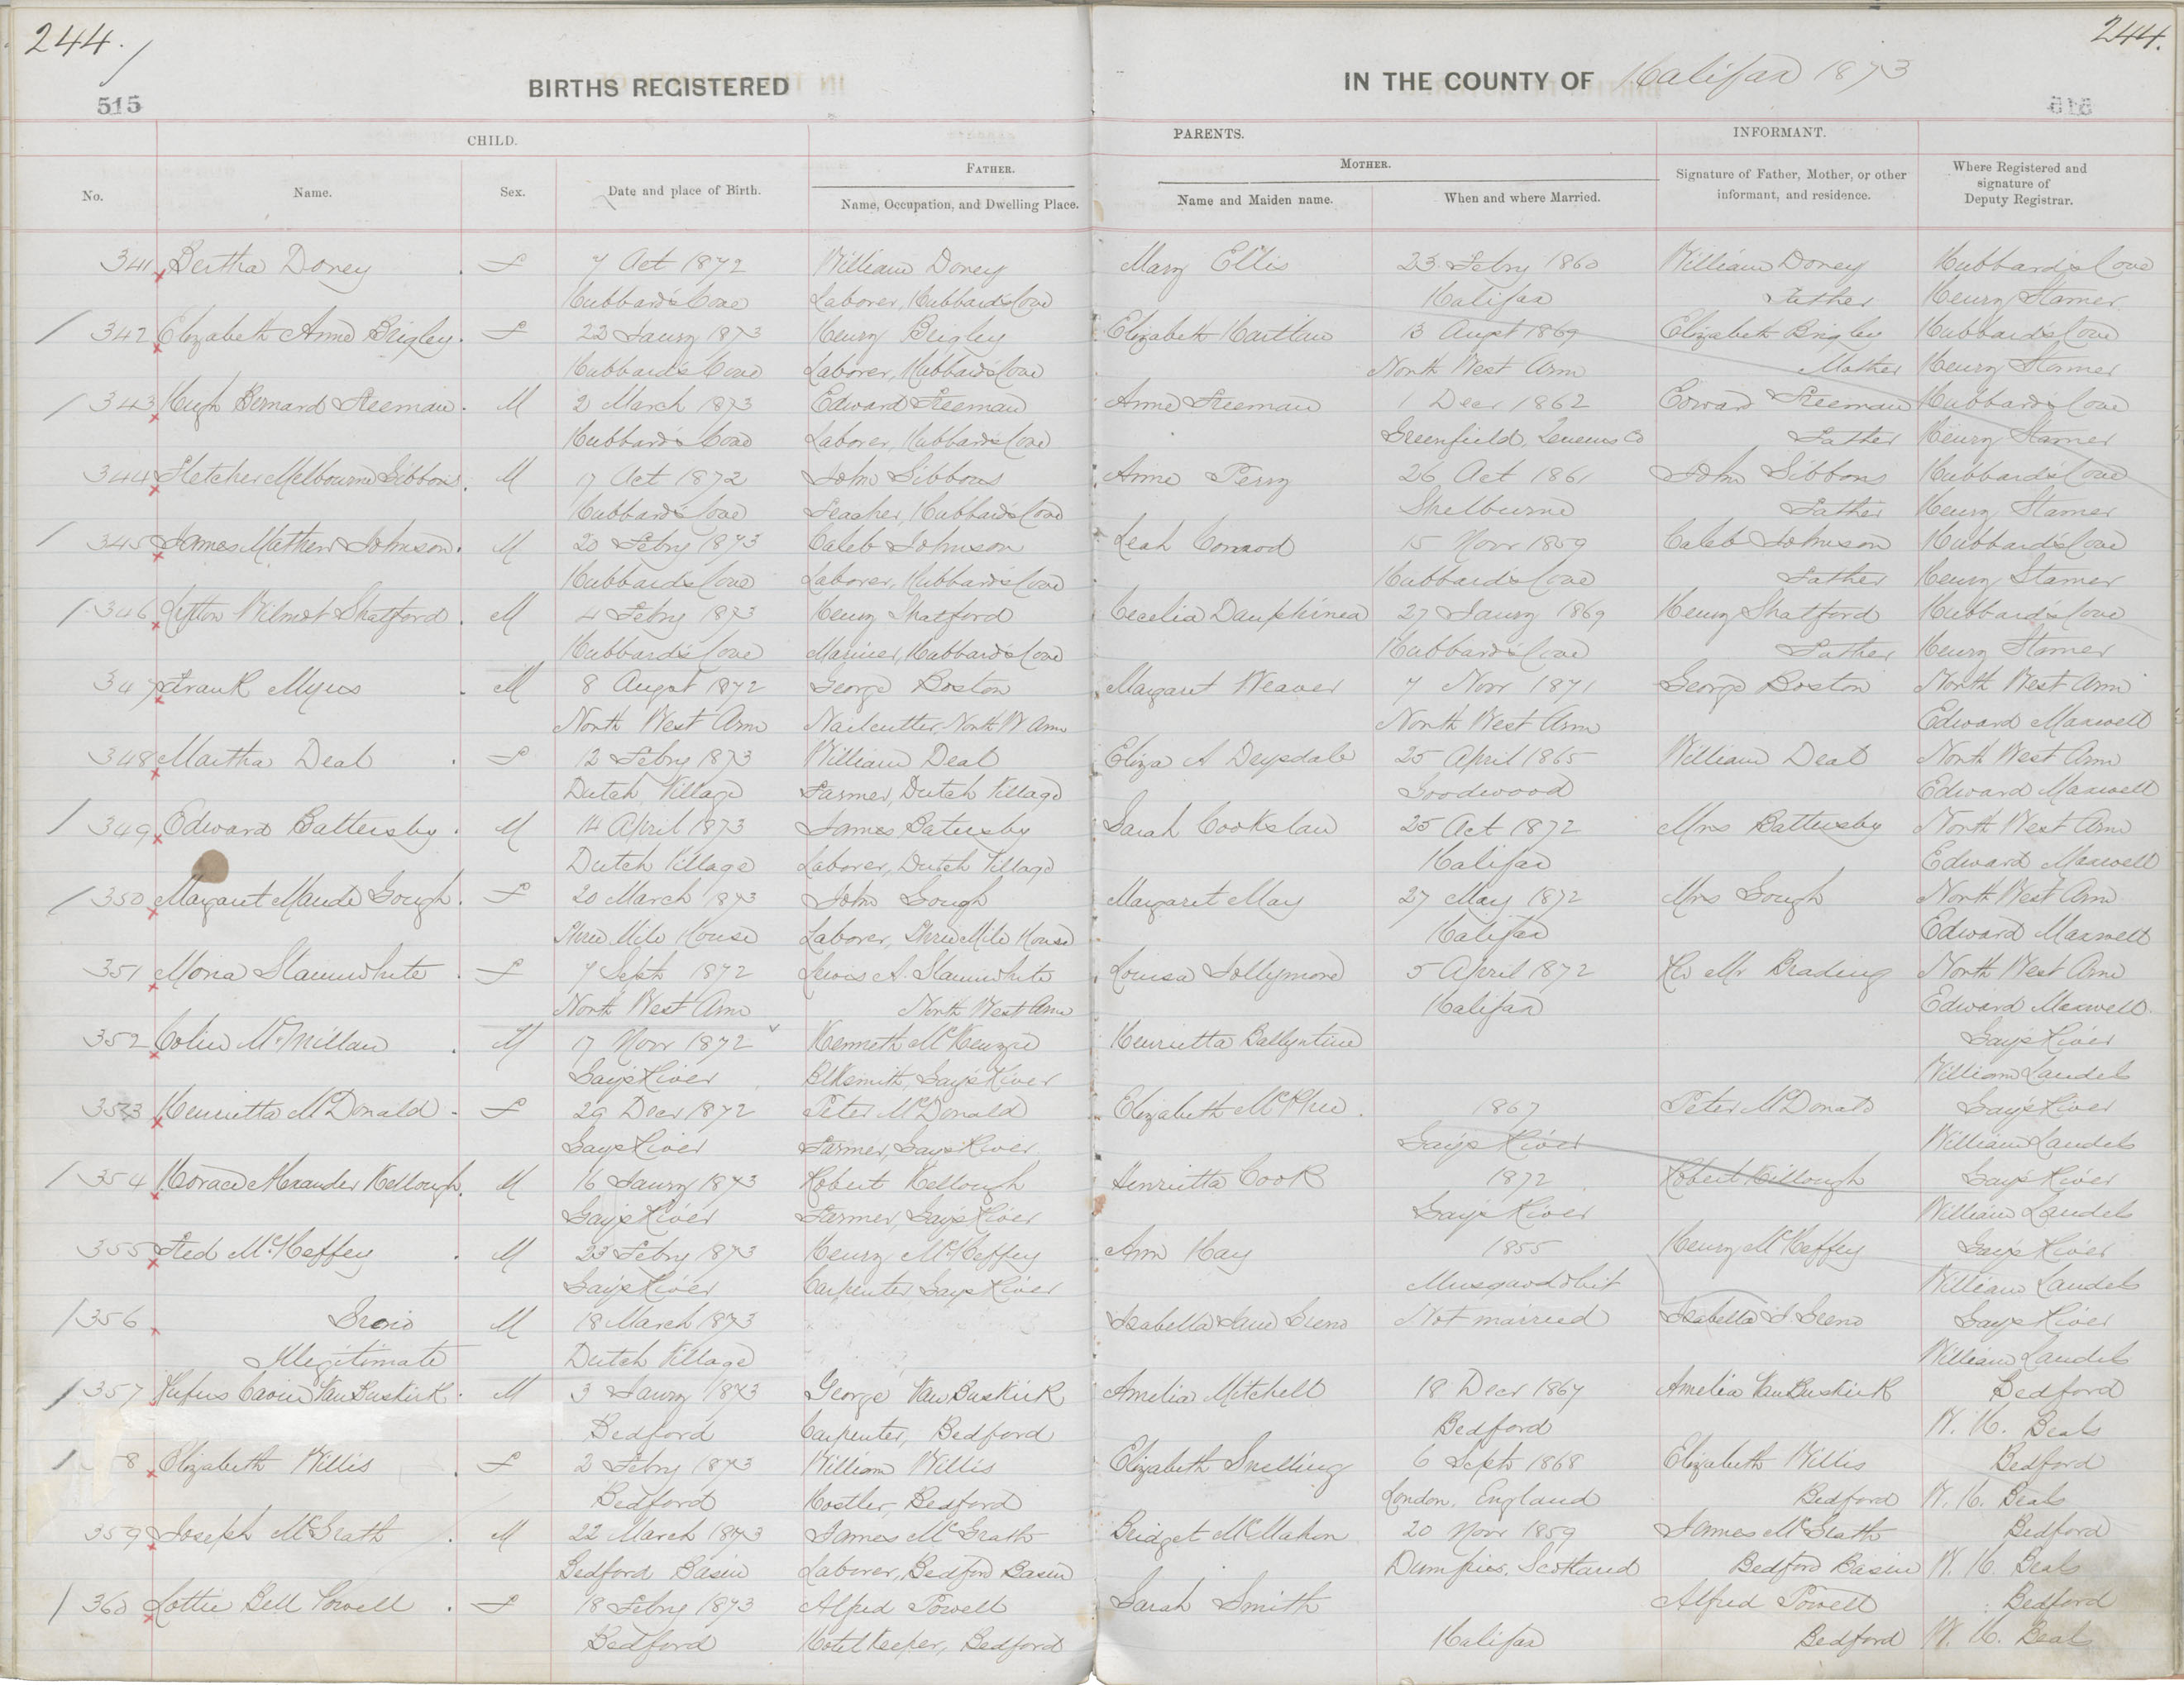 244. 244.
515
BIRTHS REGISTERED IN THE COUNTY OF Halifax 1873
CHILD. PARENTS. INFORMANT.
No. Name. Sex. Date and place of Birth. FATHER. Name, Occupation, and Dwelling Place. MOTHER. Name and Maiden name. When and where Married. Signature of Father, Mother, or other informant, and residence. Where Registered and signature of Deputy Registrar.
341 Bertha Doney f 7 Oct 1872 William Doney Mary Ellis 23 Febry 1860 William Doney Hubbard's Cove
Hubbard's Cove Laborer, Hubbard's Cove Halifax Father Henry Stamer
342 Elizabeth Anne Brigley f 22 Jany 1873 Henry Brigley Elizabeth 13 Augst 1869 Elizabeth Brigley Hubbard's Cove
Hubbard's Cove Laborer, Hubbard's Cove North West Arm Mother Henry Stamer
343 Hugh Bernard Freeman M 2 March 1873 Edward Freeman Anne Freeman 1 Decr 1862 Edward Freeman Hubbard's Cove
Hubbard's Cove Laborer, Hubbard's Cove Greenfield, Queens Co Father Henry Stamer
344 Fletcher Melbourne Gibbons M 17 Oct 1872 John Gibbons Anne Perry 26 Oct 1861 John Gibbons Hubbard's Cove
Hubbard's Cove Teacher, Hubbard's Cove Shelburne Father Henry Stamer
345 James Mathew Johnson M 20 Febry 1873 Caleb Johnson Leah Conrod 15 Novr 1859 Caleb Johnson Hubbard's Cove
Hubbard's Cove Laborer, Hubbard's Cove Hubbard's Cove Father Henry Stamer
346 Wilmot Shatford M 4 Febry 1873 Henry Shatford Cecelia Dauphinea 27 Jany 1869 Henry Shatford Hubbard's Cove
Hubbard's Cove Mariner, Hubbard's Cove Hubbard's Cove Father Henry Stamer
347 Frank Myers M 8 Augst 1872 George Boston Margaret Weaver 7 Novr 1871 George Boston North West Arm
North West Arm Nailcutter, North W Arm North West Arm Edward Maxwell
348 Martha Deal f 12 Febry 1873 William Deal Eliza A Deysdale 25 April 1865 William Deal North West Arm
Dutch Village Farmer, Dutch Village Goodwood Edward Maxwell
349 Edward Battersby M 14 April 1873 James Batersby Sarah Cookslaw 25 Oct 1872 Mrs Battersby North West Arm
Dutch Village Laborer, Dutch Village Halifax Edward Maxwell
350 Margaret Maude Gough f 20 March 1873 John Gough Margaret May 27 May 1872 Mrs Gough North West Arm
Three Mile House Laborer, Three Mile House Halifax Edward Maxwell
351 Mona Slaunwhite f 7 Septr 1872 Lewis A. Slaunwhite Louisa Jollymore 5 April 1872 Mr Brading North West Arm
North West Arm North West Arm Halifax Edward Maxwell
352 Colin McMillan M 17 Novr 1872 Kenneth McKenzie Henrietta Ballyntine Gay's River
Gay's River Blksmith, Gay's River William Landels
353 Henrietta McDonald f 29 Decr 1872 Peter McDonald Elizabeth 1867 Peter McDonald Gay's River
Gay's River Farmer, Gay's River Gay's River William Landels
354 Horace Alexander Kellough M 16 Jany 1873 Robert Kellough Henrietta Cook 1872 Robert Killough Gay's River
Gay's River Farmer, Gay's River Gay's River William Landels
355 Fred McHeffey M 23 Febry 1873 Henry McHeffey Ann Kay 1855 Henry McHeffey Gay's River
Gay's River Carpenter Gay's River Musquodobit William Landels
356 Greno M 18 March 1873 Isabella Jane Greno Not married Isabella J. Greno Gay's River
Illegitimate Dutch Village William Landels
357 Rufus VanBuskirk M 3 Jany 1873 George VanBuskirk Amelia Mitchell 18 Decr 1867 Amelia VanBuskirk Bedford
Bedford Carpenter, Bedford Bedford W. H. Beals
8 Elizabeth Willis f 2 Febry 1873 William Willis Elizabeth Snelling 6 Septr 1868 Elizabeth Willis Bedford
Bedford Hostler, Bedford London, England Bedford W. H. Beals
359 Joseph McGrath M 22 March 1873 James McGrath Bridget McMahon 20 Novr 1859 James McGrath Bedford
Bedford Basin Laborer, Bedford Basin Dumfries, Scotland Bedford Basin W. H. Beals
360 Lottie Bell Powell f 18 Febry 1873 Alfred Powell Sarah Smith Alfred Powell Bedford
Bedford Hotel Keeper, Bedford Halifax Bedford W. H. Beals